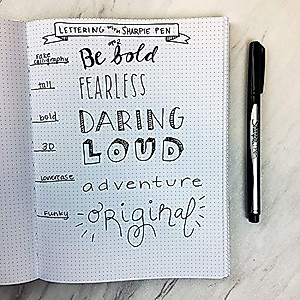 LETTERING with SHARPIE PEN
fake calligraphy
Be bold
tall
FEARLESS
bold
DARING
3D
LOUD
lowercase
adventure
funky
original
Sharpie